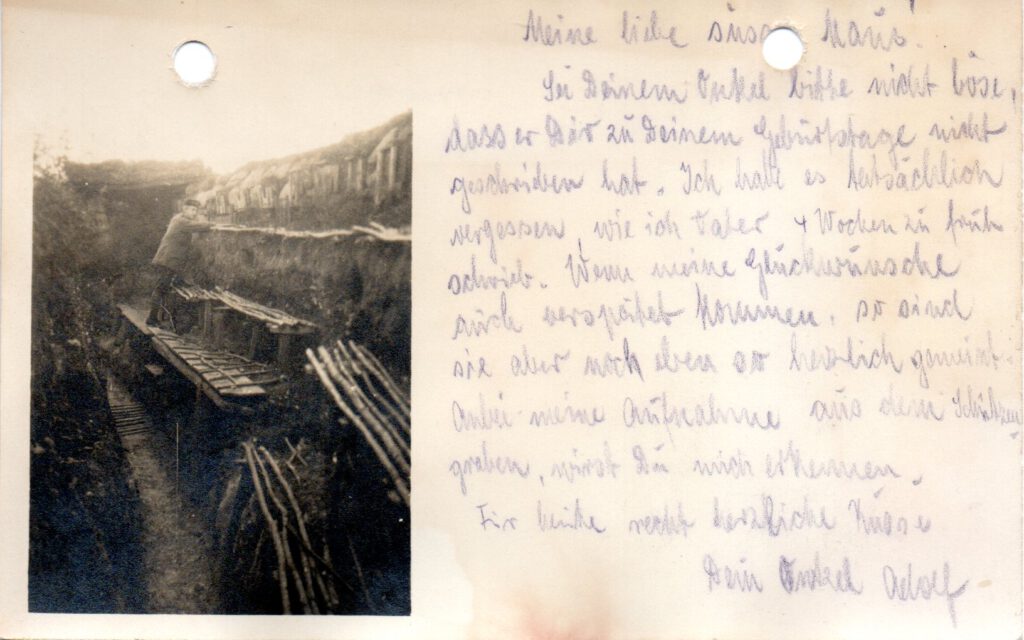 Meine liebe süsse Maus!
Sei Deinem Onkel bitte nicht böse,
dass er Dir zu Deinem Geburtstage nicht
geschrieben hat. Ich habe es tatsächlich
vergessen, wie ich Vater 4 Wochen zu früh
schrieb. Wenn meine Glückwünsche
auch verspätet kommen, so sind
sie aber noch eben so herzlich gemeint.
Anbei meine Aufnahme aus dem Schützen
graben, wirst Du mich erkennen.
Für heute recht herzliche Küsse
Dein Onkel Adolf